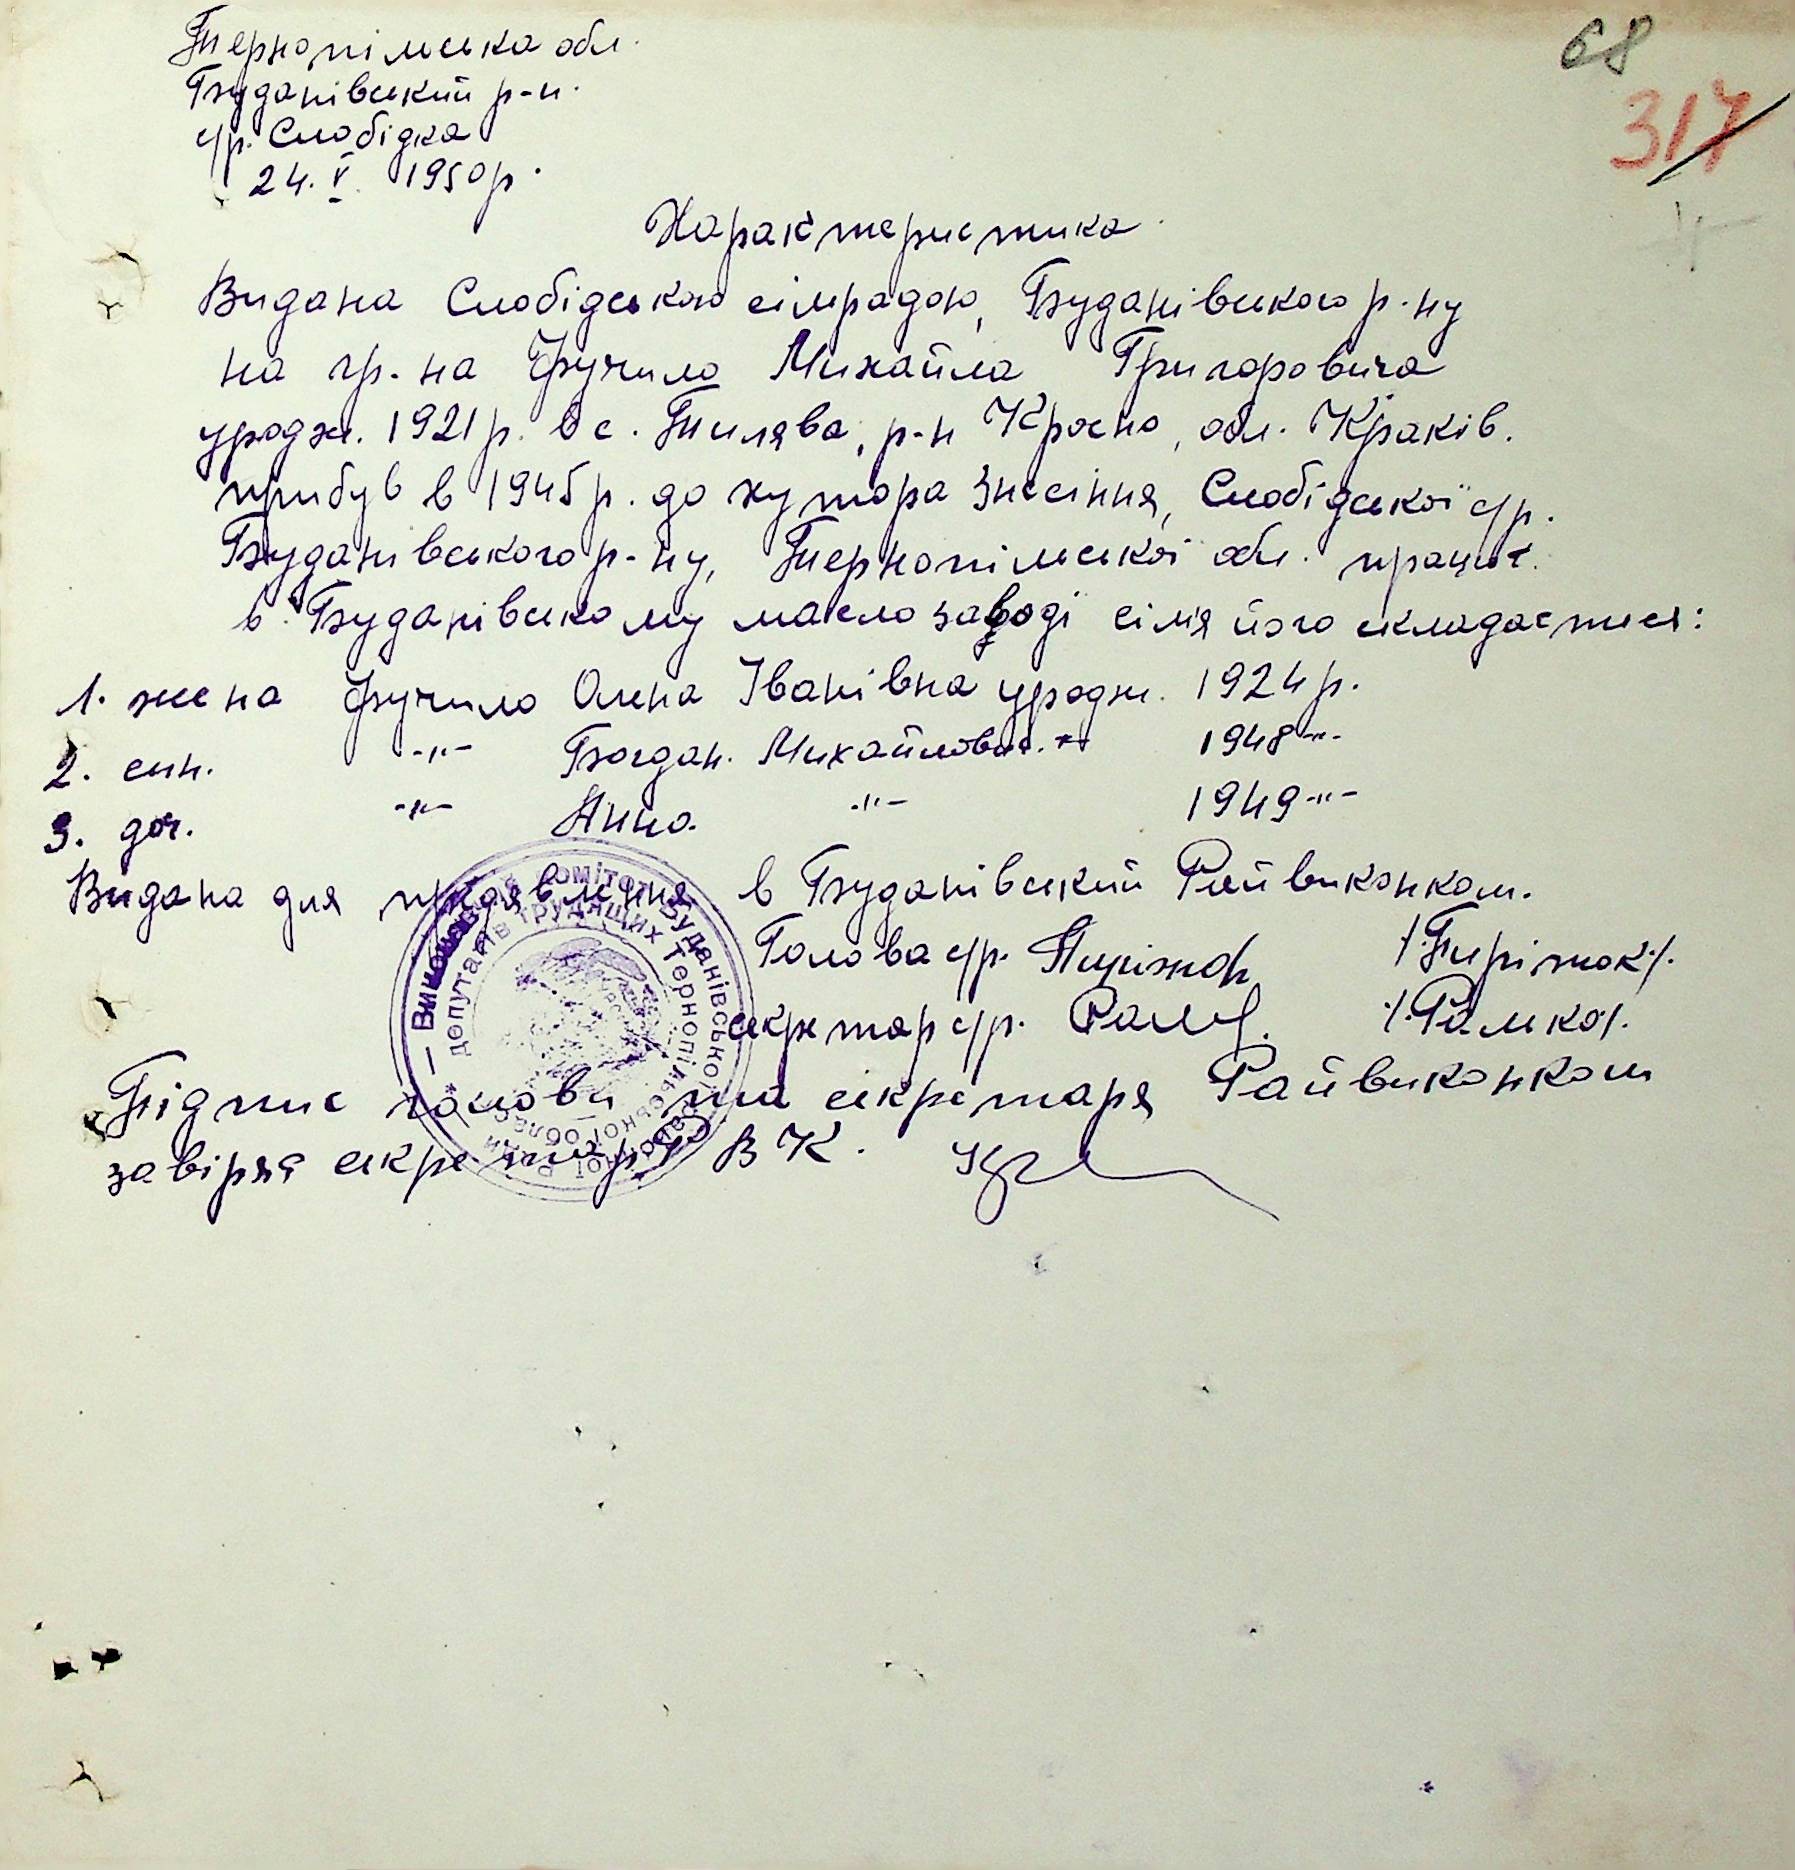 68
317
Тернопільська обл.
Буданівський р-н.
с/р. Слобідка
24. V. 1950 р.
Характеристика
Видана Слобідською сілрадою, Буданівського р-ну
на гр-на Фучило Михайла Григоровича
уродж. 1921 р. в с. Тилява, р-н Кросно, обл. Краків.
прибув в 1945 р. до хутора Знесіння, Слобідської с/р.
Буданівського р-ну, Тернопільської обл. працює.
в Буданівському маслозаводі сімя його складаєтися:
1. жена Фучило Олена Іванівна уродж. 1924 р.
2. син. -"- Богдан. Михайлович. -"- 1948 -"-
3. доч. -"- Анна. -"- 1949 -"-
Видана для предявлення в Буданівський Райвиконком.
Голова с/р. /Пиріжок/.
секретар с/р. /Ралько/.
Підпис голови та секретаря Райвиконком
завіряє секретар РВК.
— Виконавчий комітет Буданівської районної Ради
депутатів трудящих Тернопільської області